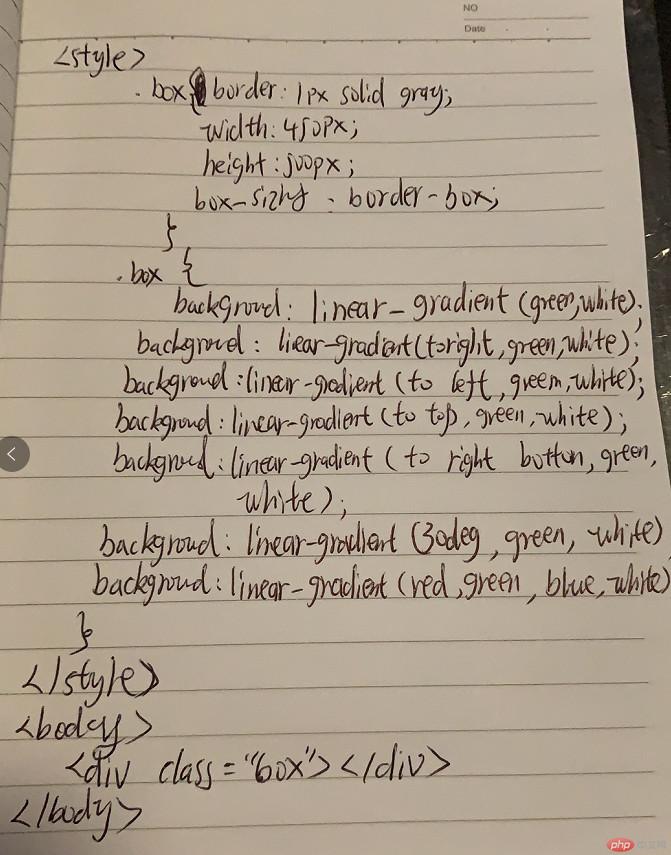 NO
Date
<style>
.box{ border: 1px solid gray;
width: 450px;
height: 500px;
box-sizing : border-box;
}
.box {
backgroud: linear-gradient (green,white);
backgroud: liear-gradient(toright,green,white);
backgroud:linear-gradient (to left,greem,white);
backgroud: linear-gradiert (to top, green, white);
backgroud: linear-gradient ( to right botton, green,
white);
backgroud: linear-gradient (30deg, green, white)
backgroud: linear-gradient (red,green, blue, white)
}
</style>
<body>
<div class="box"></div>
</body>
php